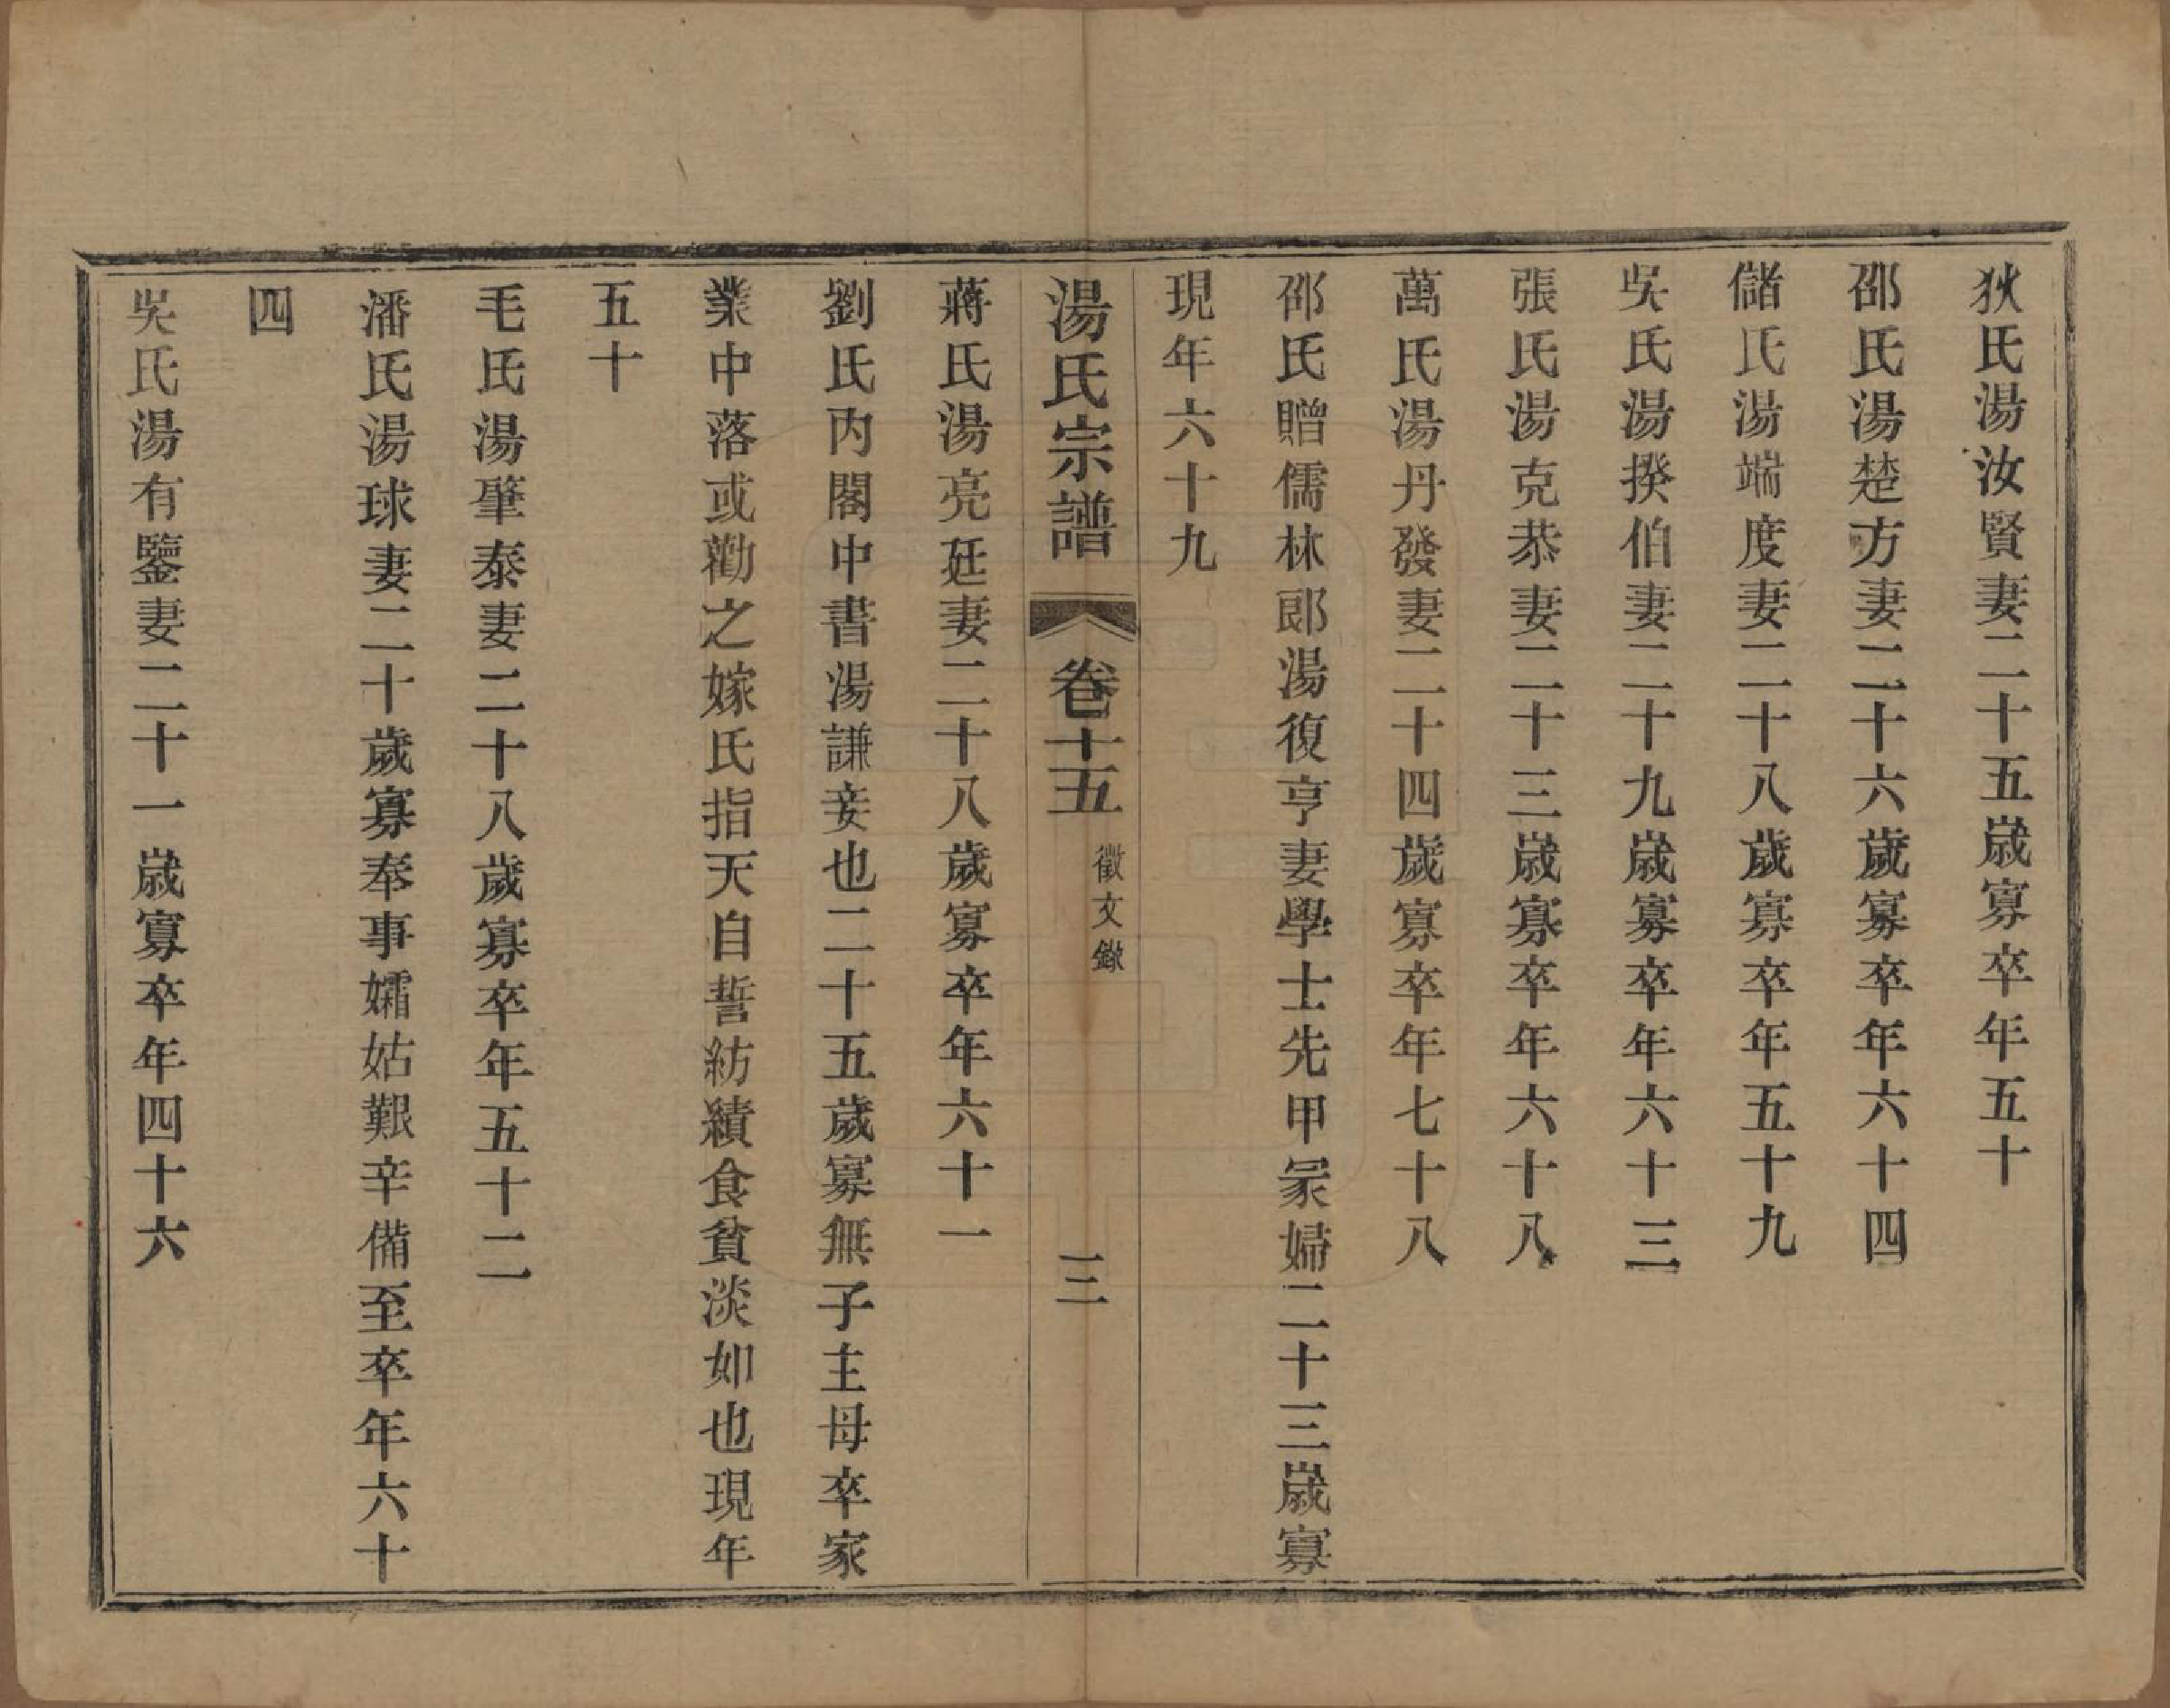 狄氏湯汝賢妻二十五歲寡卒年五十
邵氏湯楚方妻二十六歲寡卒年六十四
儲氏湯端度妻二十八歲寡卒年五十九
吳氏湯揆伯妻二十九歲寡卒年六十三
張氏湯克恭妻二十三歲寡卒年六十八
萬氏湯丹發妻二十四歲寡卒年七十八
邵氏贈儒林郎湯復亨妻學士先甲冡婦二十三歲寡
現年六十九
湯氏宗譜 卷十五 徵文錄 三
蔣氏湯亮廷妻二十八歲寡卒年六十一
劉氏內閣中書湯謙妾也二十五歲寡無子主母卒家
業中落或勸之嫁氏指天自誓紡績食貧淡如也現年
五十
毛氏湯肇泰妻二十八歲寡卒年五十二
潘氏湯球妻二十歲寡奉事孀姑艱辛備至卒年六十
四
吳氏湯有鑒妻二十一歲寡卒年四十六